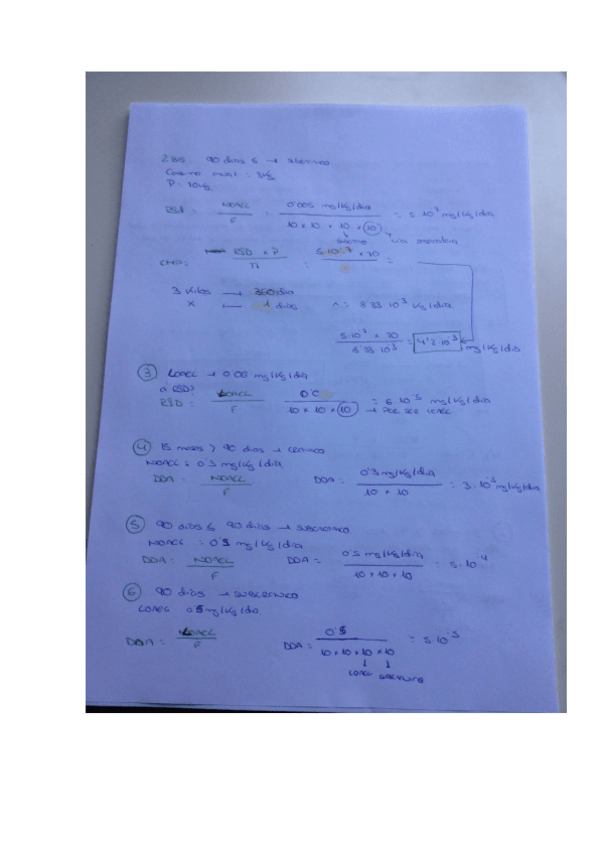 2 BIS. 90 dias ≤ →
Consumo anual : 3Kg
P = 70Kg.
RSD = NOAEL / F = 0'005 mg/Kg/dia / 10 x 10 x 10 x 10 = 5·10⁻⁷ mg/Kg/dia
via
CMP = RSD x P / Ti = 5·10⁻⁷ x 70 / =
3 Kilos → 360 dia
X — 1 dias n = 8'33·10⁻³ Kg/dia
5·10⁻⁷ x 70 / 8'33·10⁻³ = 4'2·10⁻³ mg/Kg/dia
3 LOAEL → 0'06 mg/Kg/dia
a RSD?
RSD = LOAEL / F 0'0 / 10 x 10 x 10 → Por ser LOAEL = 6·10⁻⁵ mg/Kg/dia
4 15 meses > 90 dias → cronico
NOAEL = 0'3 mg/Kg/dia
DDA = NOAEL / F DDA = 0'3 mg/Kg/dia / 10 x 10 = 3·10⁻³ mg/Kg/dia
5 90 dias ≤ 90 dias → subcronico
NOAEL = 0'5 mg/Kg/dia
DDA = NOAEL / F DDA = 0'5 mg/Kg/dia / 10 x 10 x 10 = 5·10⁻⁴
6 90 dias → subcronico
LOAEL 0'5 mg/Kg/dia
DDA = LOAEL / F DDA = 0'5 / 10 x 10 x 10 x 10 = 5·10⁻⁵
LOAEL subcronico